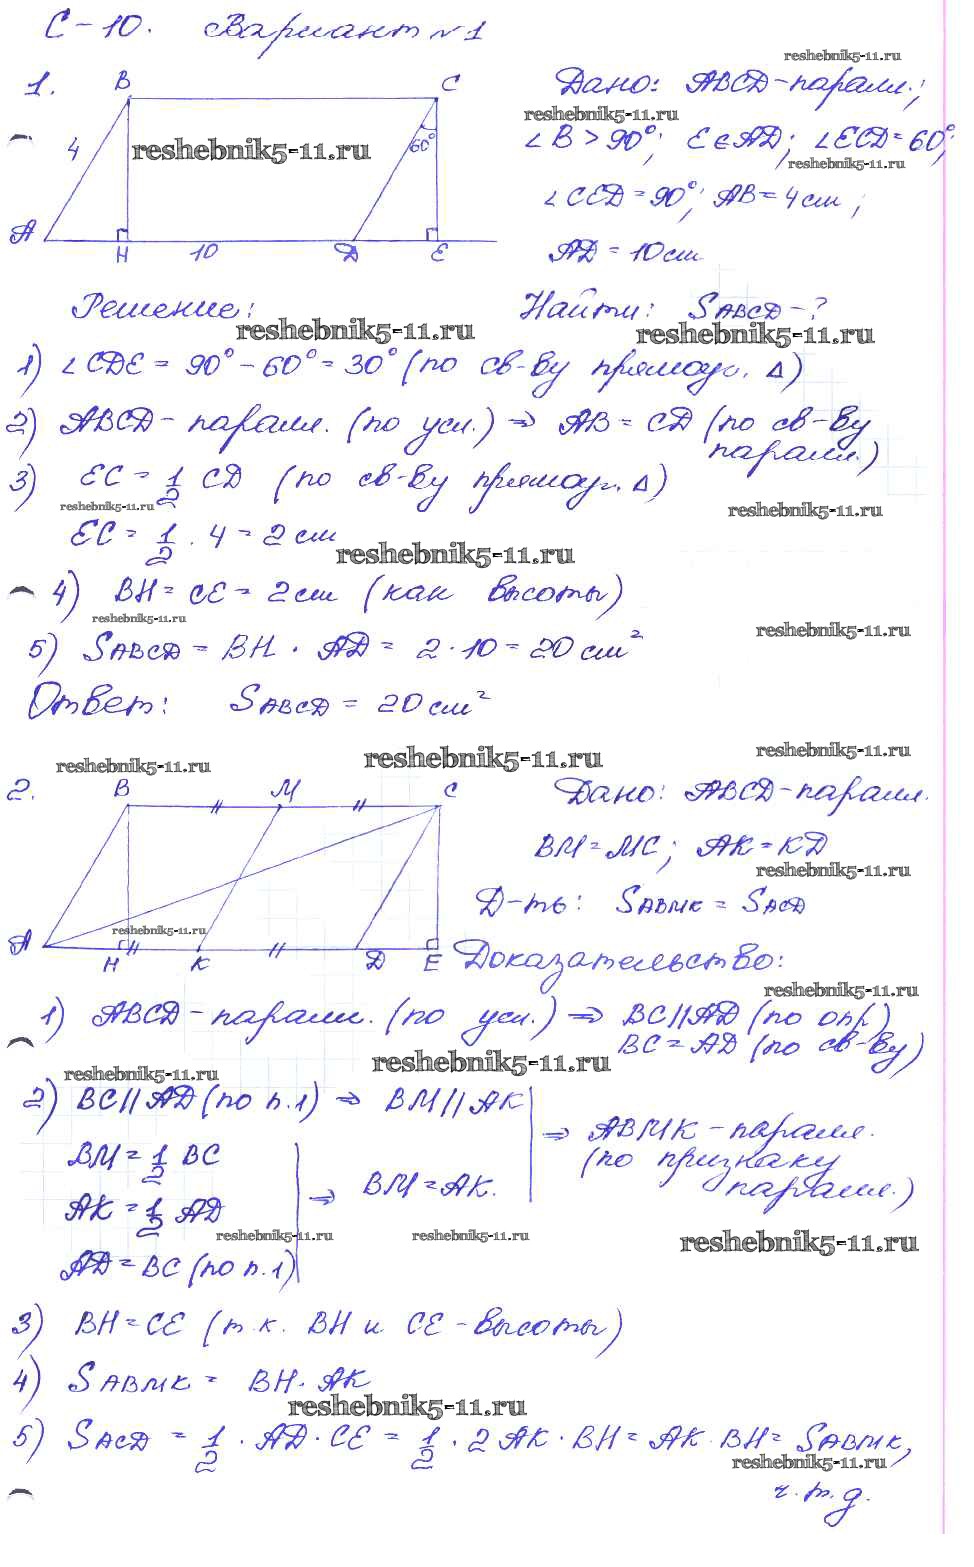 С-10. Вариант №1
reshebnik5-11.ru
1.
B
C
4
60°
A
H
10
D
E
reshebnik5-11.ru
Дано: ABCD-паралл.;
reshebnik5-11.ru
∠B > 90°; E∈AD; ∠ECD = 60°;
reshebnik5-11.ru
∠CED = 90°; AB = 4см;
AD = 10см
Решение:
Найти: SABCD - ?
reshebnik5-11.ru
reshebnik5-11.ru
1) ∠CDE = 90° - 60° = 30° (по св-ву прямоуг. Δ)
2) ABCD - паралл. (по усл.) ⇒ AB = CD (по св-ву
паралл.)
3) EC = 1/2 CD (по св-ву прямоуг. Δ)
reshebnik5-11.ru
reshebnik5-11.ru
EC = 1/2 · 4 = 2 см
reshebnik5-11.ru
4) BH = CE = 2см (как высоты)
reshebnik5-11.ru
reshebnik5-11.ru
5) SABCD = BH · AD = 2 · 10 = 20 см²
Ответ: SABCD = 20 см²
reshebnik5-11.ru
reshebnik5-11.ru
reshebnik5-11.ru
2.
B
M
C
A
H
K
D
E
reshebnik5-11.ru
Дано: ABCD-паралл.
BM = MC; AK = KD
reshebnik5-11.ru
Д-ть: SABMK = SACD
Доказательство:
reshebnik5-11.ru
1) ABCD - паралл. (по усл.) ⇒ BC || AD (по опр)
BC = AD (по св-ву)
reshebnik5-11.ru
reshebnik5-11.ru
2) BC || AD (по п.1) ⇒ BM || AK
⇒ ABMK - паралл.
(по признаку
паралл.)
BM = 1/2 BC
AK = 1/2 AD
⇒ BM = AK.
reshebnik5-11.ru
reshebnik5-11.ru
reshebnik5-11.ru
AD = BC (по п.1)
3) BH = CE (т.к. BH и CE - высоты)
4) SABMK = BH · AK
reshebnik5-11.ru
5) SACD = 1/2 · AD · CE = 1/2 · 2 AK · BH = AK · BH = SABMK,
reshebnik5-11.ru
ч.т.д.